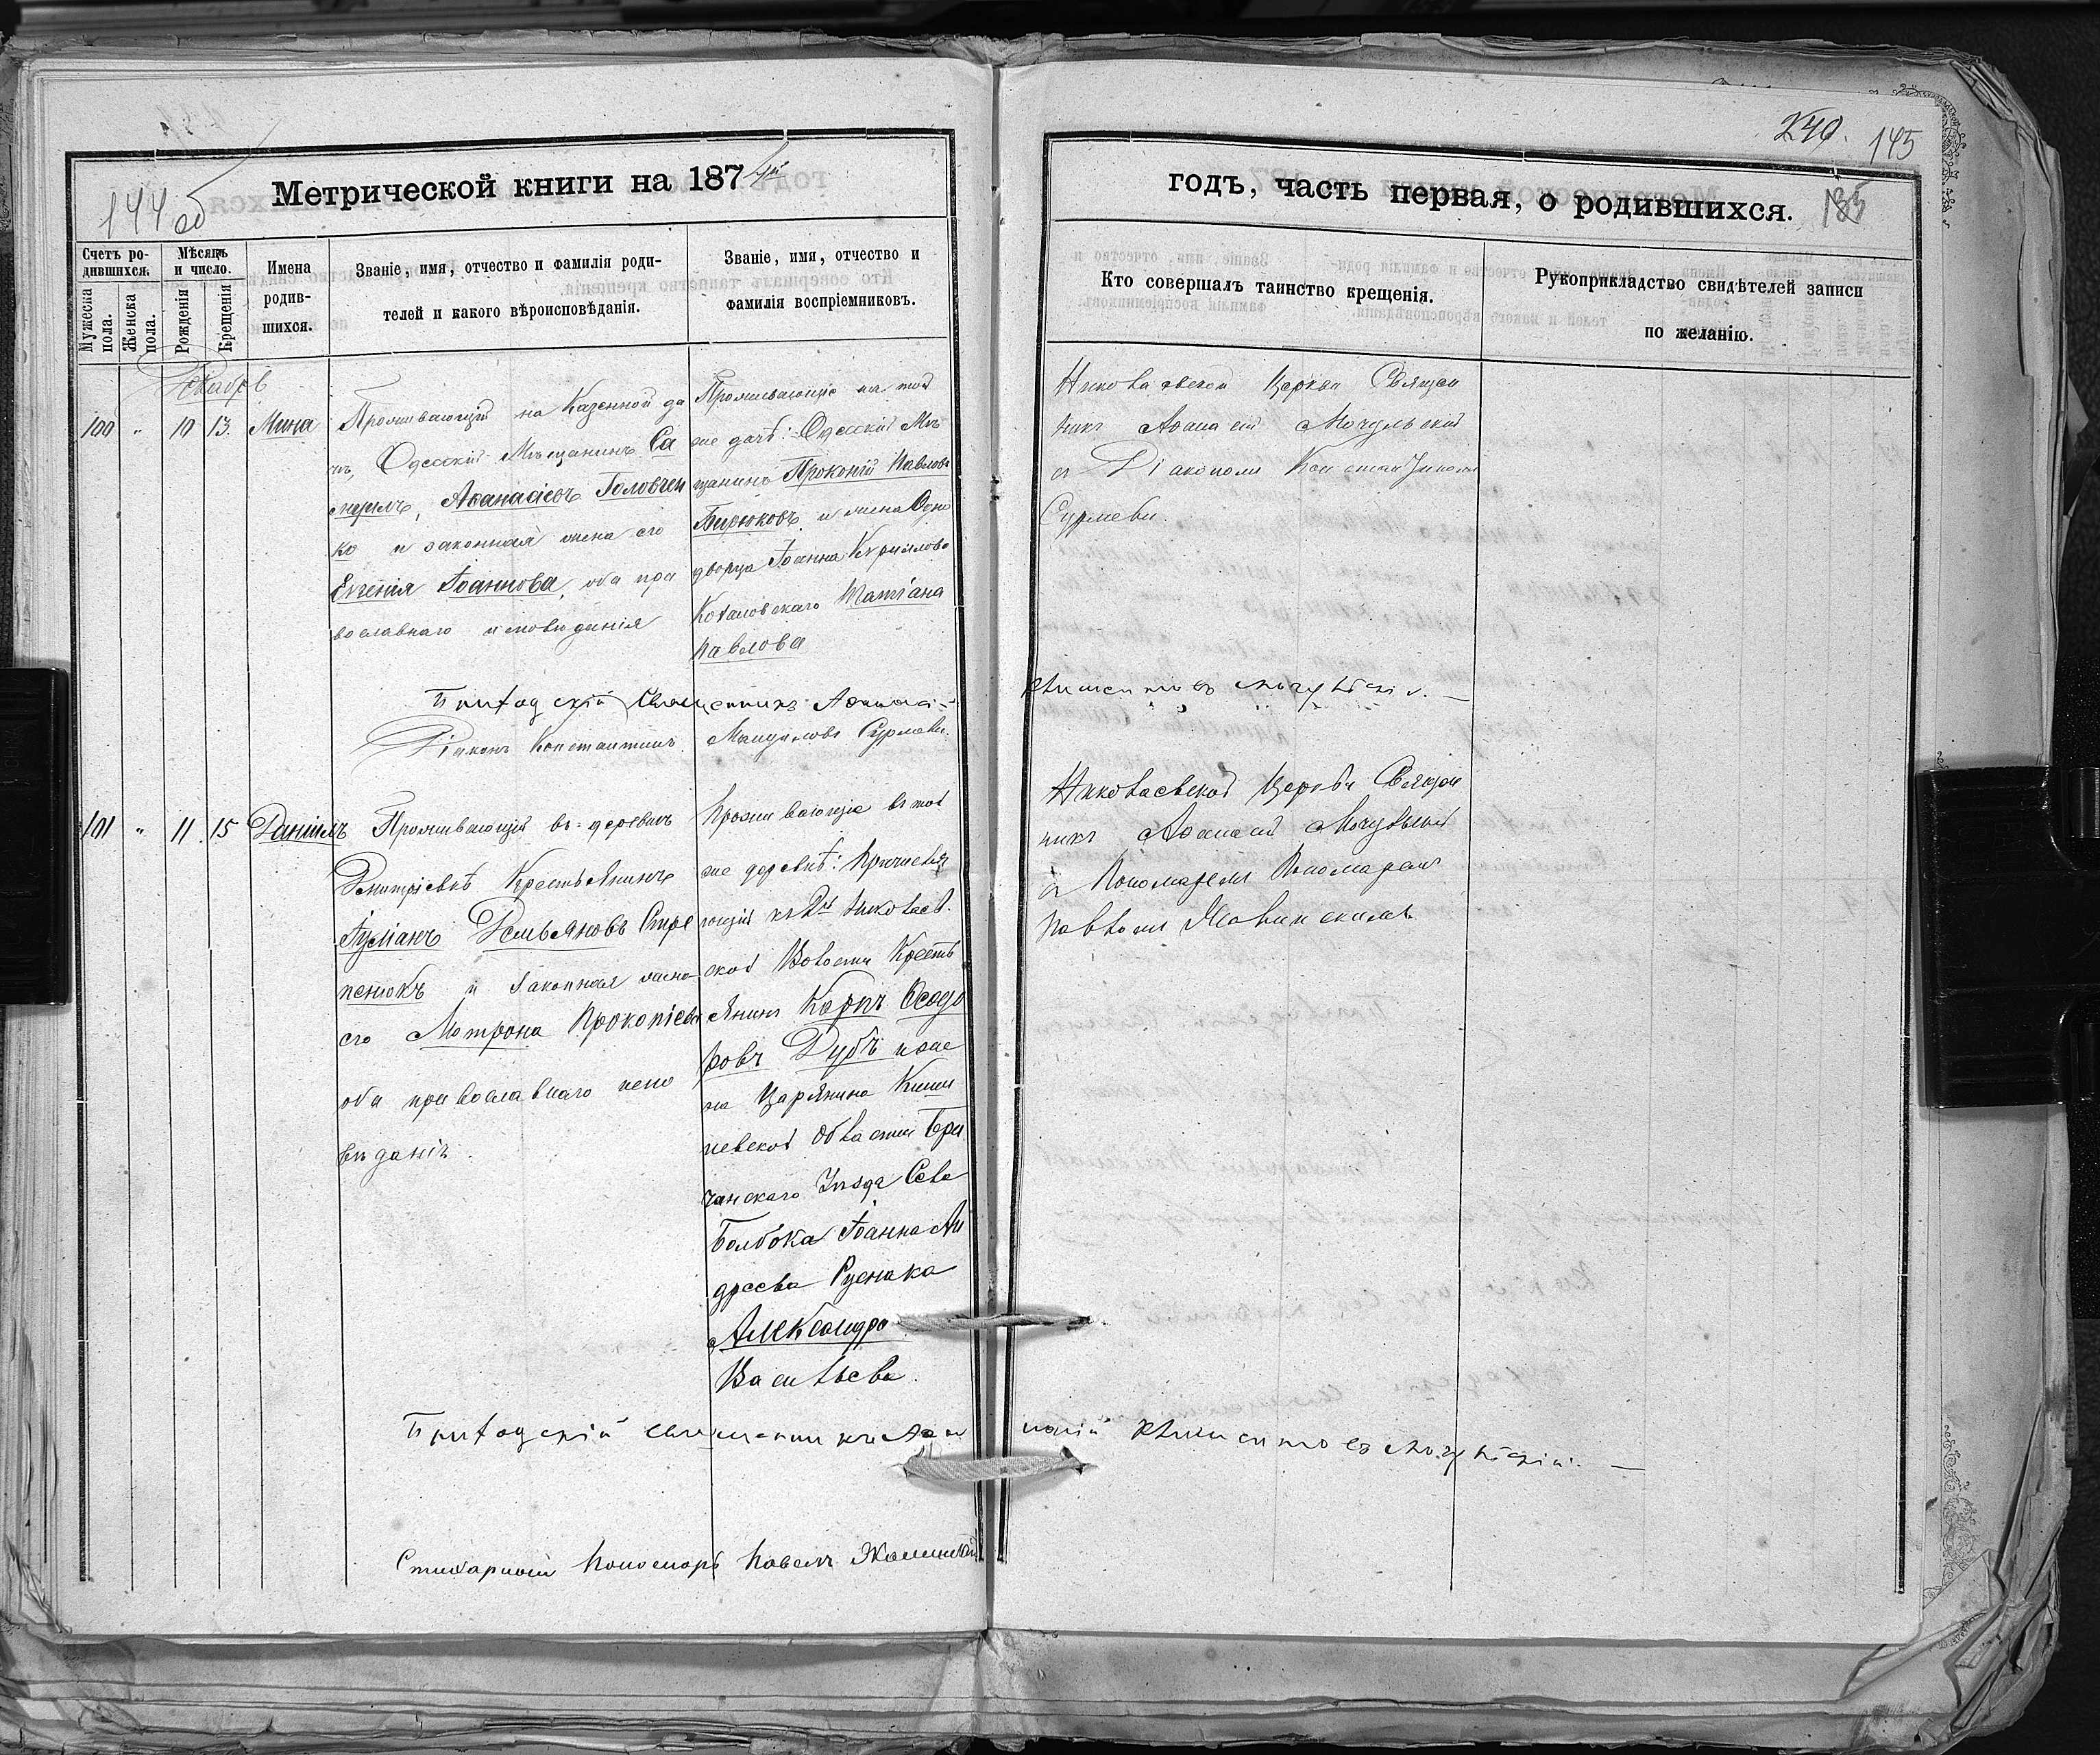 240.
145
135
144 об
Метрической книги на 1874й
годъ, часть первая, о родившихся.
Счетъ родившихся.
Мужеска пола.
Женска пола.
Мѣсяцъ и число.
Рожденія
Крещенія
Имена родив-
шихся.
Званіе, имя, отчество и фамилія роди-
телей и какого вѣроисповѣданія.
Званіе, имя, отчество и
фамилія воспріемниковъ.
Кто совершалъ таинство крещенія.
Рукоприкладство свидѣтелей записи
по желанію.
Декабрь
100 " 10 13. Мина
Проживающій на Казенной да
чѣ, Одесскій Мѣщанинъ Са
Аѳанасіевъ Головчен
ко и законная жена его
Евгенія Іоаннова, оба пра
вославнаго исповѣданія
Проживающіе на той
же дачѣ: Одесскій Мѣ
щанинъ Прокопій Павловъ
Бирюковъ и жена Одно
дворца Іоанна Кириллова
Коваловскаго Татіана
Павлова
Николаевской Церкви Священ
никъ Аѳанасій Мочульскій
съ Діакономъ Константиномъ
Приходскій Священникъ Аѳанасій
Діаконъ Константинъ
101 " 11. 15 Даніилъ
Проживающій въ деревнѣ
Дмитріевкѣ Крестьянинъ
Іуліанъ Демьяновъ Стре
пенюкъ и законная жена
его Мотрона Прокопіева
оба православнаго испо
вѣданія.
Проживающіе въ той
же деревнѣ: Причисля
ющій къ 2й Николаев.
ской Волости Кресть
янинъ Карпъ Ѳеодо
ровъ Дубъ и же
на Царянина Киши
невской Области
чанскаго Уѣзда Села
Болбока Іоанна Ан
дреева Руснака
Александра
Васильева.
Николаевской Церкви Священ
никъ Аѳанасій Мочульскій
съ Пономаремъ
Павломъ
Приходскій Священникъ Аѳа
насій Мочульскій. —
Стихарный Пономарь Павелъ